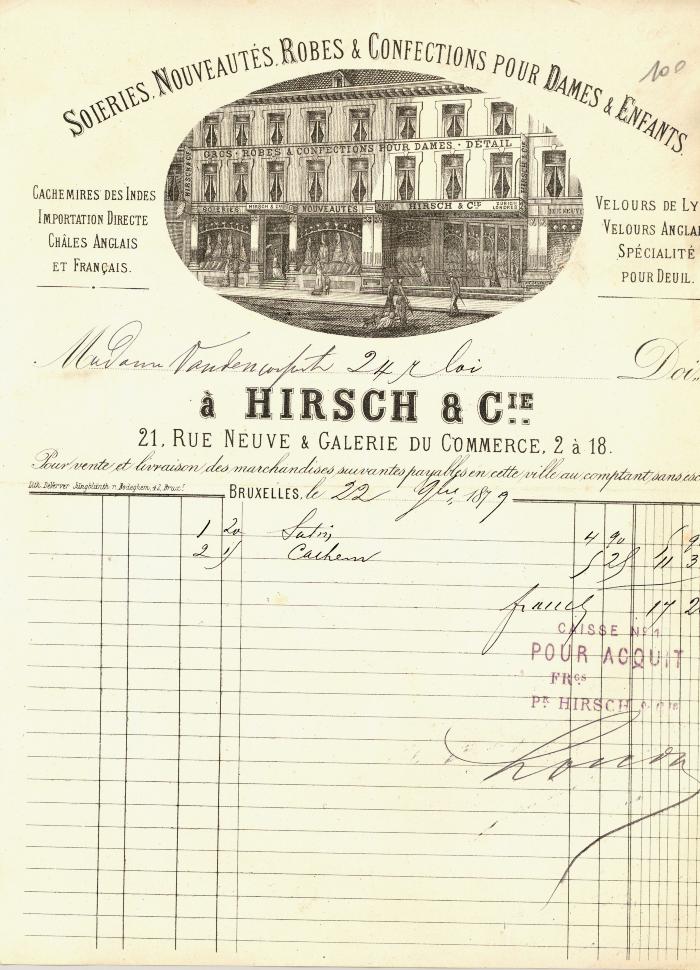 100
SOIERIES. NOUVEAUTÉS. ROBES & CONFECTIONS POUR DAMES & ENFANTS.
GROS · ROBES & CONFECTIONS POUR DAMES · DÉTAIL
SOIERIES HIRSCH & CIE NOUVEAUTÉS HIRSCH & CIE ZURICH LONDRES RUE NEUVE
CACHEMIRES DES INDES
IMPORTATION DIRECTE
CHÂLES ANGLAIS
ET FRANÇAIS.
VELOURS DE LY
VELOURS ANGLAI
SPÉCIALITÉ
POUR DEUIL.
Madame 24 r loi Doi
à HIRSCH & CIE
21, RUE NEUVE & GALERIE DU COMMERCE, 2 à 18.
Pour vente et livraison des marchandises suivantes payables en cette ville au comptant sans esc
BRUXELLES, le 22 9bre 1879
1 20 Satin 4 90
2 15 Cachem 5 25 11 3
francs 17 2
CAISSE No 1
POUR ACQUIT
FRCS
PR HIRSCH & CIE